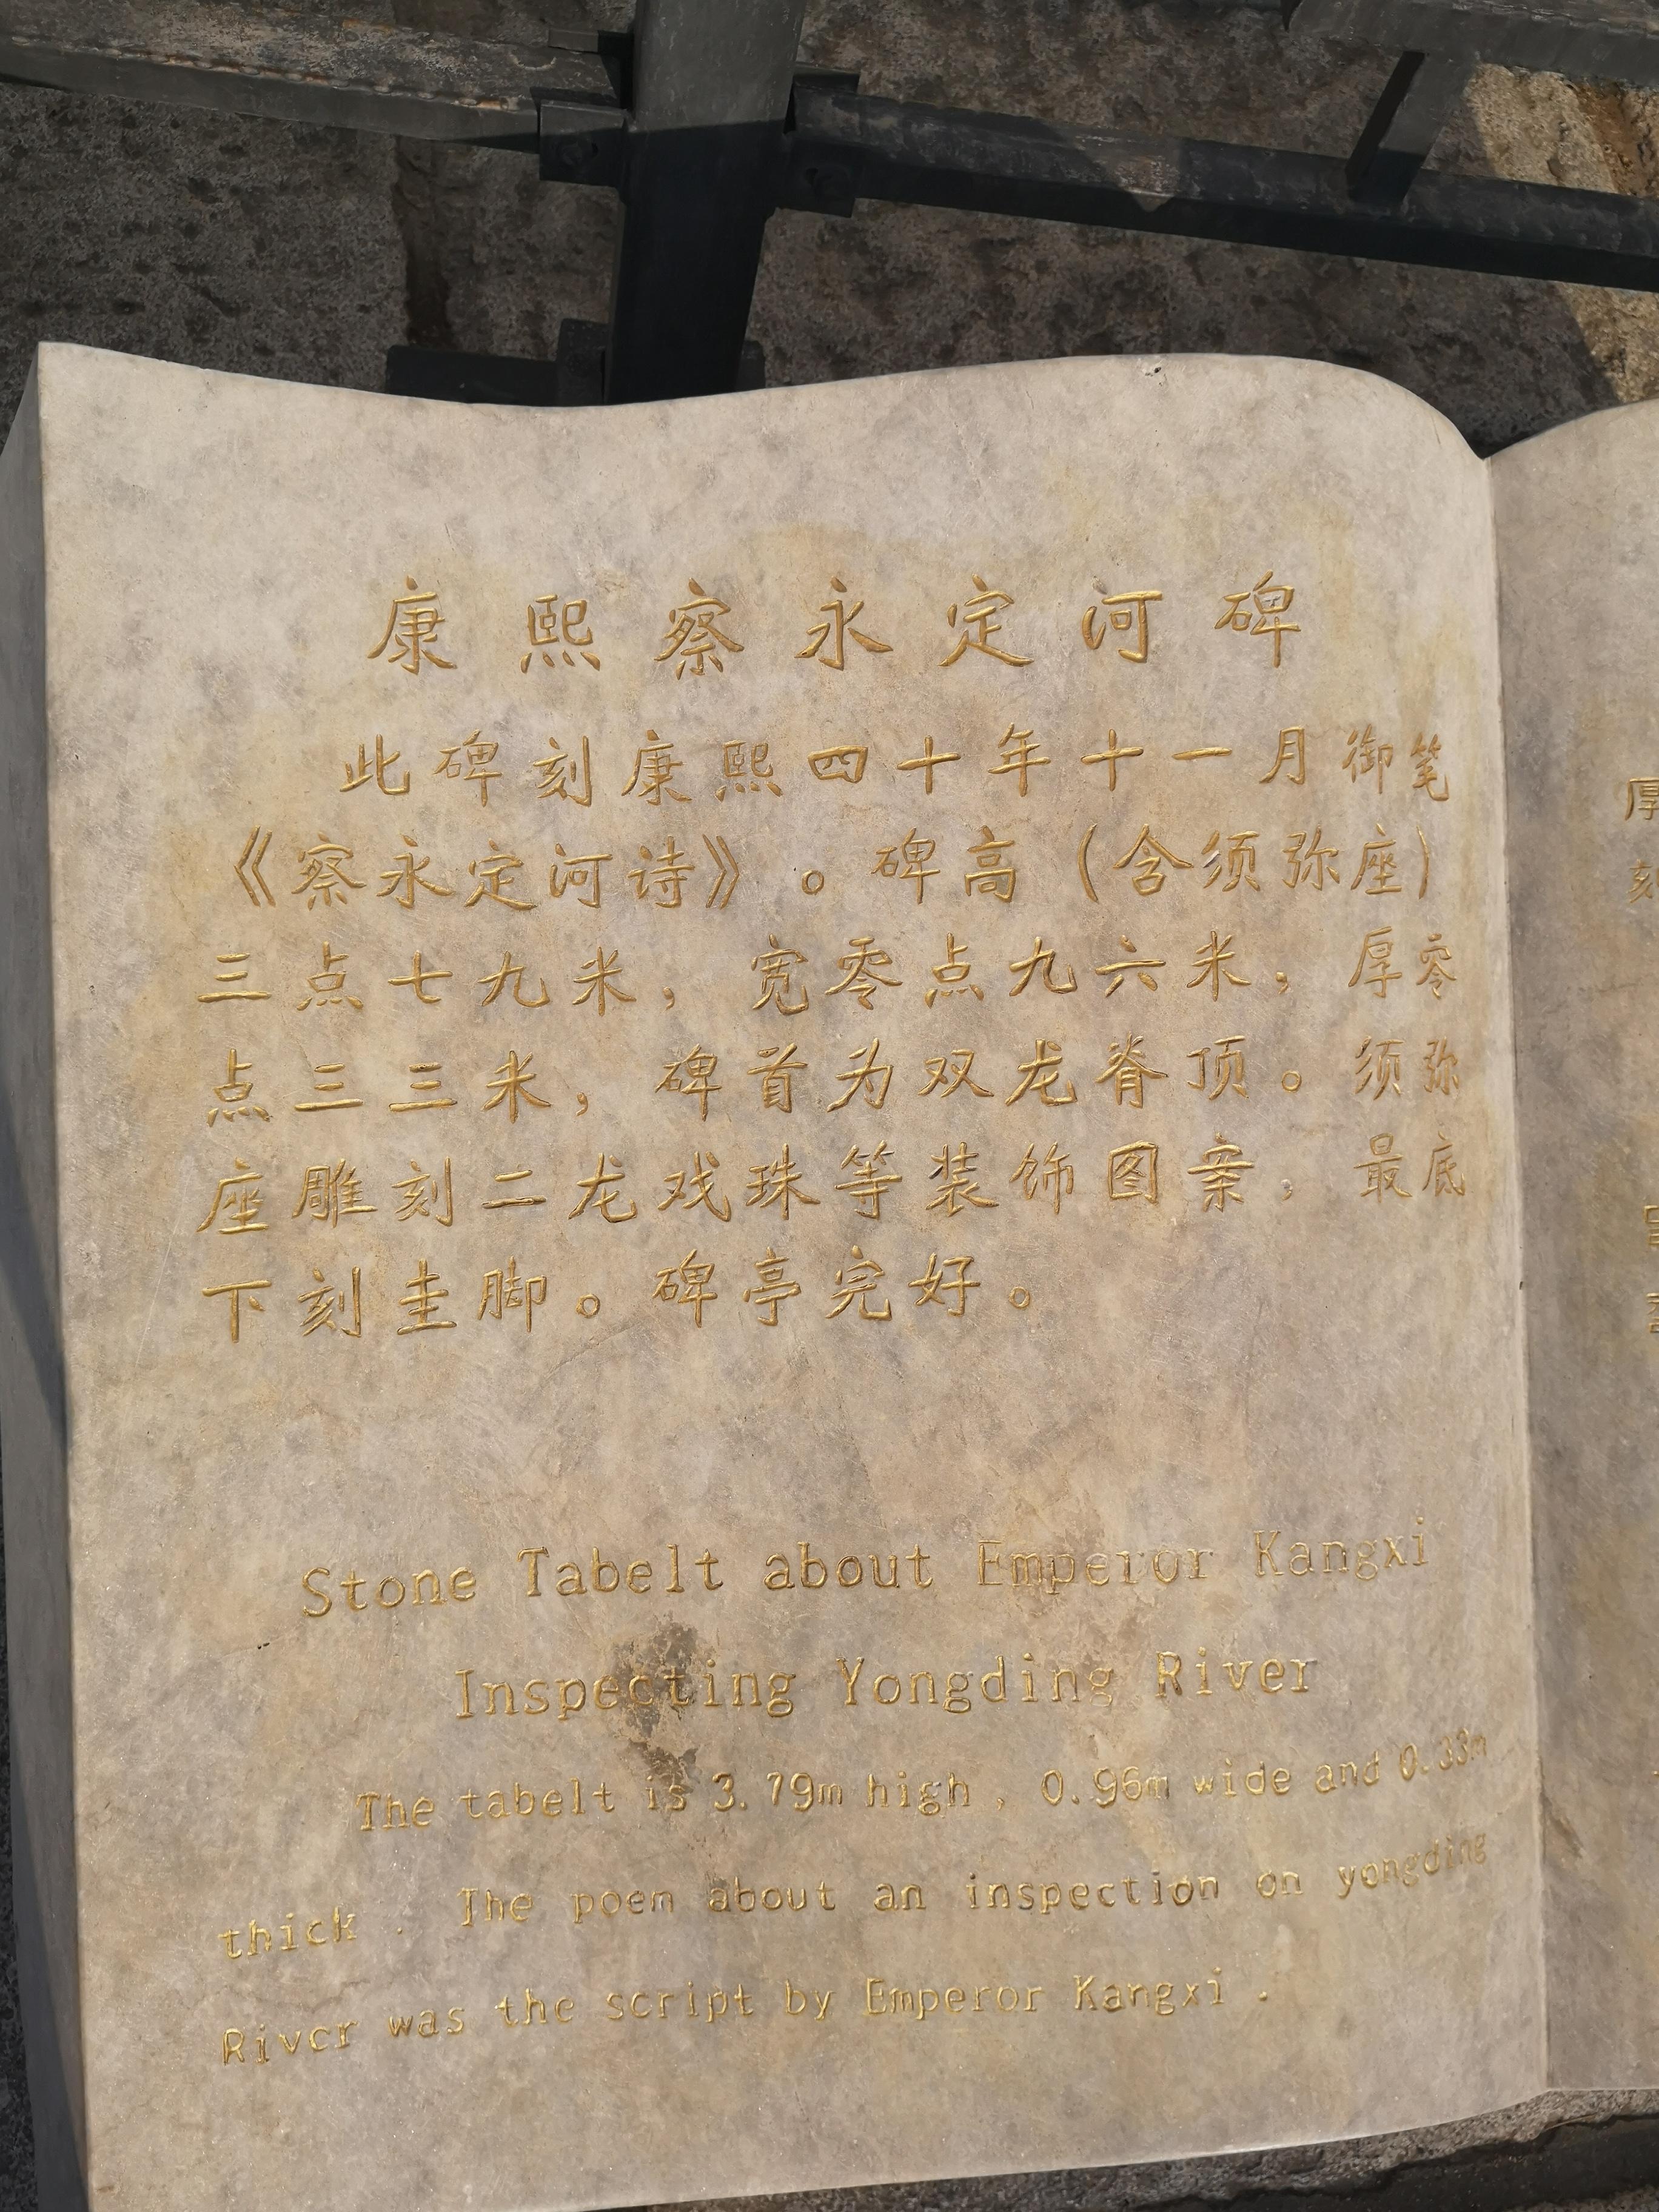 康熙察永定河碑
此碑刻康熙四十年十一月御笔
《察永定河诗》。碑高（含须弥座）
三点七九米，宽零点九六米，厚零
点三三米，碑首为双龙脊顶。须弥
座雕刻二龙戏珠等装饰图案，最底
下刻圭脚。碑亭完好。
Stone Tabelt about Emperor Kangxi
Inspecting Yongding River
The tabelt is 3.79m high , 0.96m wide and 0.33m
thick . The poem about an inspection on yongding
River was the script by Emperor Kangxi .
厚
刻